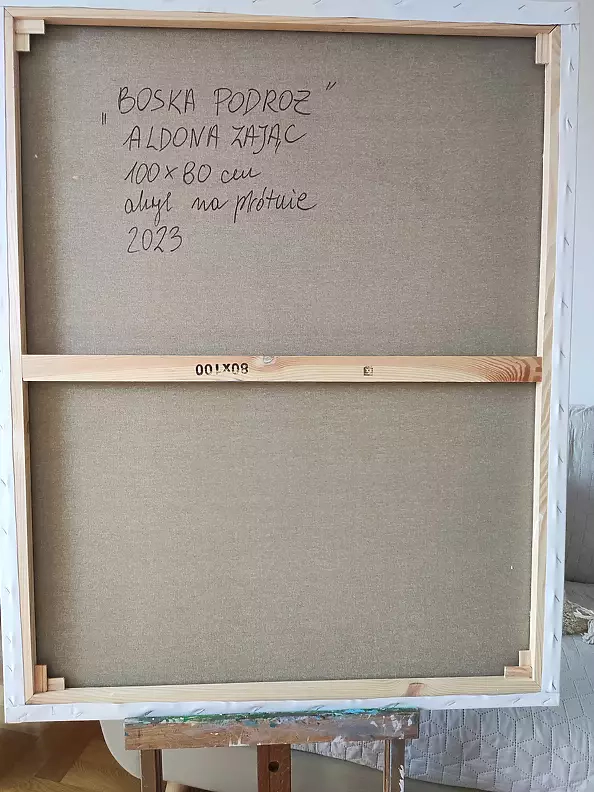 „BOSKA PODROZ”
ALDONA ZAJĄC
100 x 80 cm
akryl na płótnie
2023
80X100